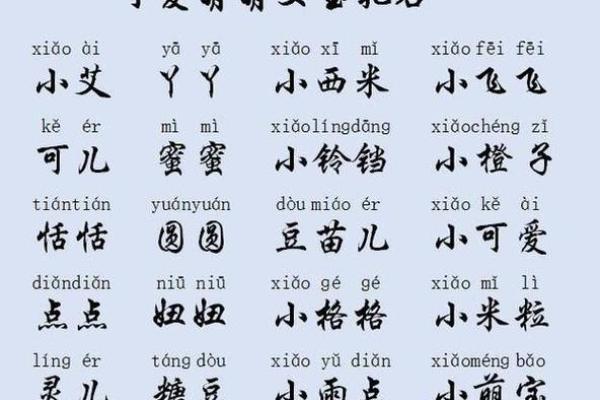 可爱萌萌女宝乳名
xiǎo ài yā yā xiǎo xī mǐ xiǎo fēi fēi
小艾 丫丫 小西米 小飞飞
kě ér mì mì xiǎolíngdāng xiǎochéng zǐ
可儿 蜜蜜 小铃铛 小橙子
tiántián yuányuán dòu miáo ér xiǎo kě ài
恬恬 圆圆 豆苗儿 小可爱
diǎndiǎn niū niū xiǎo gé gé xiǎo mǐ lì
点点 妞妞 小格格 小米粒
líng ér táng dòu xiǎo yǔ diǎn xiǎoméng bǎo
灵儿 糖豆 小雨点 小萌宝